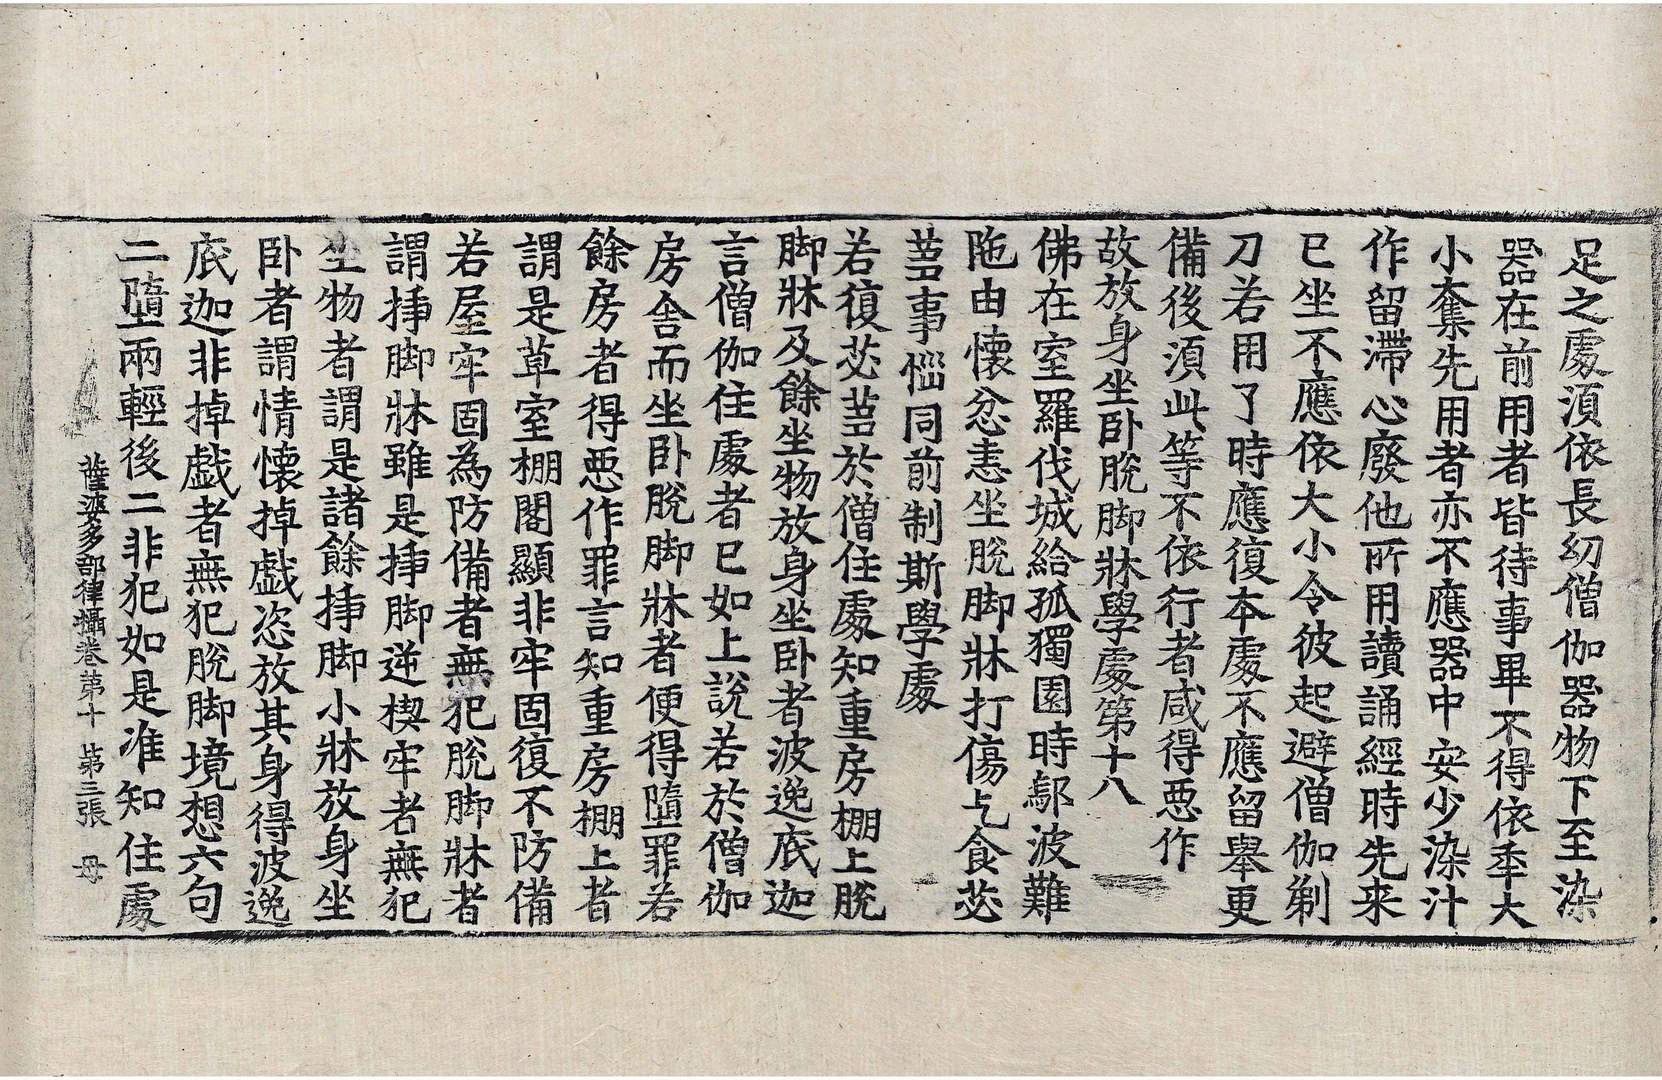 足之處湏依長幼僧伽器物下至染
器在前用者皆待事畢不得依年大
小奪先用者亦不應器中安少染汁
作留滯心廢他所用讀誦經時先来
已坐不應依大小令彼起避僧伽剃
刀若用了時應復本處不應留舉更
備後湏此等不依行者咸得惡作
故放身坐卧脫脚牀學處第十八
佛在室羅伐城給孤獨園時鄔波難
陁由懷忿恚坐脫脚牀打傷乞食苾
芻事惱同前制斯學處
若復苾芻於僧住處知重房棚上脫
脚牀及餘坐物放身坐卧者波逸底迦
言僧伽住處者已如上說若於僧伽
房舍而坐卧脫脚牀者便得墮罪若
餘房者得惡作罪言知重房棚上者
謂是草室棚閣顯非牢固復不防備
若屋牢固為防備者無犯脫脚牀者
謂揷脚牀雖是揷脚逆楔牢者無犯
坐物者謂是諸餘揷脚小牀放身坐
卧者謂情懷掉戲恣放其身得波逸
底迦非掉戲者無犯脫脚境想六句
二墮兩輕後二非犯如是准知住處
薩波多部律攝卷第十　第三張　母